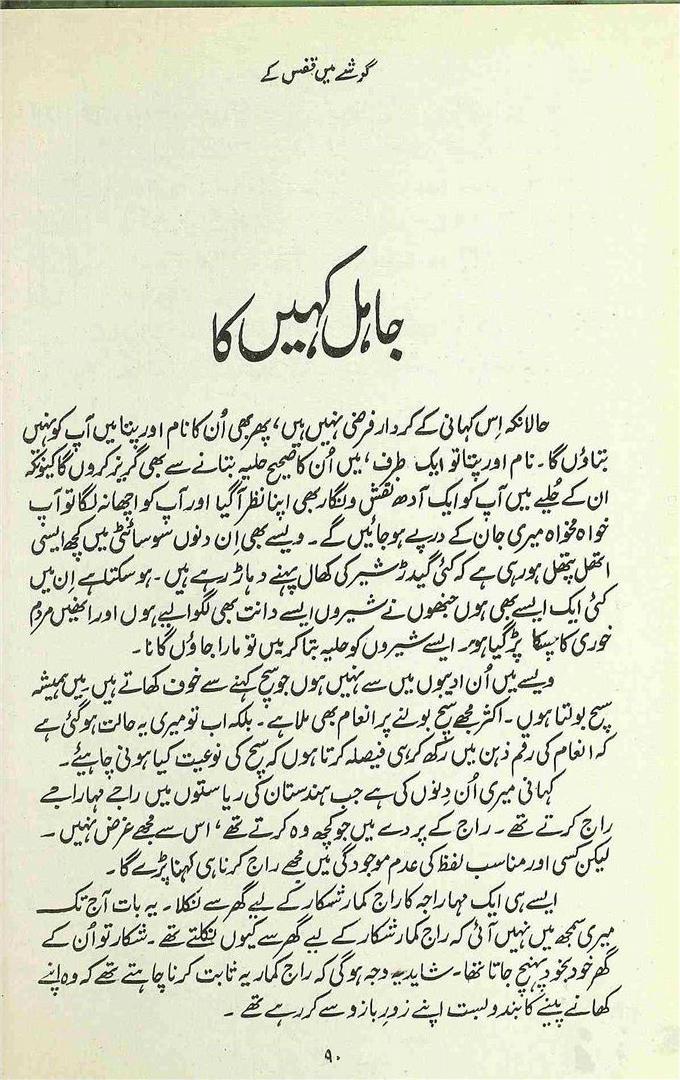 گوشے میں قفس کے
جاہل کہیں کا
حالانکہ اِس کہانی کے کردار فرضی نہیں ہیں، پھر بھی اُن کا نام اور پتا میں آپ کو نہیں
بتاؤں گا۔ نام اور پتا تو ایک طرف، میں اُن کا صحیح حلیہ بتانے سے بھی گریز کروں گا کیونکہ
ان کے حُلیے میں آپ کو ایک آدھ نقش و نگار بھی اپنا نظر آ گیا اور آپ کو اچھا نہ لگا تو آپ
خواہ مخواہ میری جان کے درپے ہو جائیں گے۔ ویسے بھی اِن دنوں سوسائٹی میں کچھ ایسی
اتھل پتھل ہو رہی ہے کہ کئی گیدڑ شیر کی کھال پہنے دہاڑ رہے ہیں۔ ہو سکتا ہے اِن میں
کئی ایک ایسے بھی ہوں جنھوں نے شیروں ایسے دانت بھی لگوا لیے ہوں اور انھیں مردم
خوری کا چسکا پڑ گیا ہو۔ ایسے شیروں کو حلیہ بتا کر میں تو مارا جاؤں گا نا۔
ویسے میں اُن ادیبوں میں سے نہیں ہوں جو سچ کہنے سے خوف کھاتے ہیں۔ میں ہمیشہ
سچ بولتا ہوں۔ اکثر مجھے سچ بولنے پر انعام بھی ملا ہے۔ بلکہ اب تو میری یہ حالت ہو گئی ہے
کہ انعام کی رقم ذہن میں رکھ کر ہی فیصلہ کرتا ہوں کہ سچ کی نوعیت کیا ہونی چاہیئے۔
کہانی میری اُن دِنوں کی ہے جب ہندستان کی ریاستوں میں راجے مہاراجے
راج کرتے تھے۔ راج کے پردے میں جو کچھ وہ کرتے تھے، اس سے مجھے غرض نہیں۔
لیکن کسی اور مناسب لفظ کی عدم موجودگی میں مجھے راج کرنا ہی کہنا پڑے گا۔
ایسے ہی ایک مہاراجہ کا راج کمار شکار کے لیے گھر سے نکلا۔ یہ بات آج تک
میری سمجھ میں نہیں آئی کہ راج کمار شکار کے لیے گھر سے کیوں نکلتے تھے۔ شکار تو اُن کے
گھر خود بخود پہنچ جاتا تھا۔ شاید یہ وجہ ہو گی کہ راج کمار یہ ثابت کرنا چاہتے تھے کہ وہ اپنے
کھانے پینے کا بندوبست اپنے زورِ بازو سے کر رہے تھے۔
۹۰